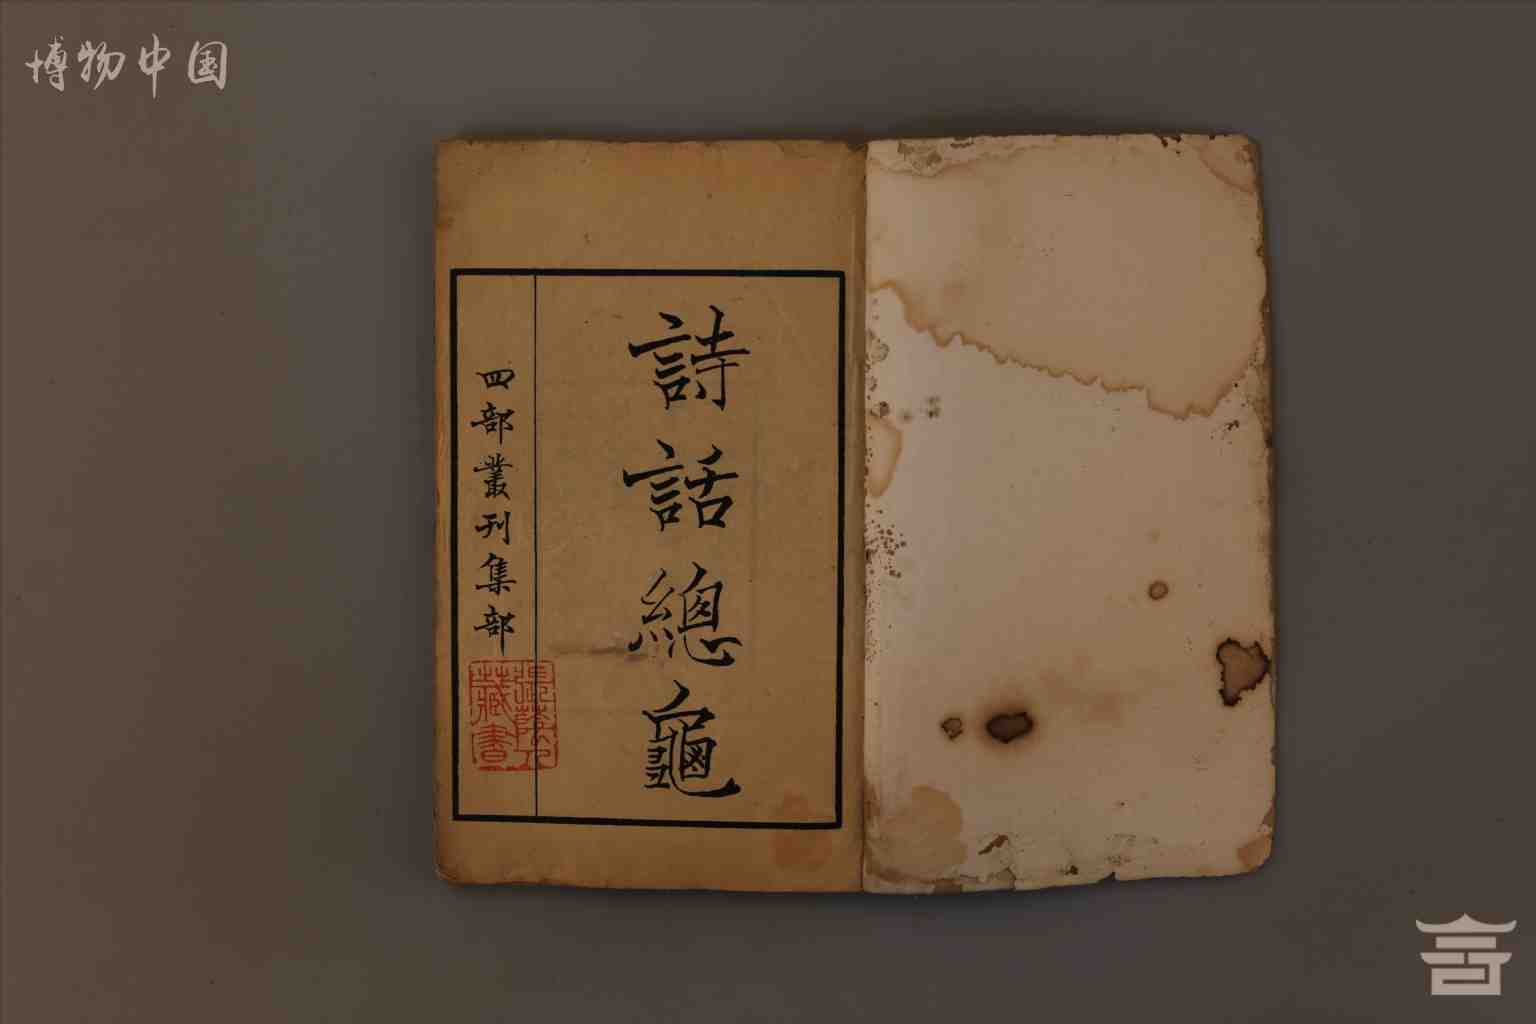 博物中国
詩話總龜
四部叢刊集部
張蔭人
藏書